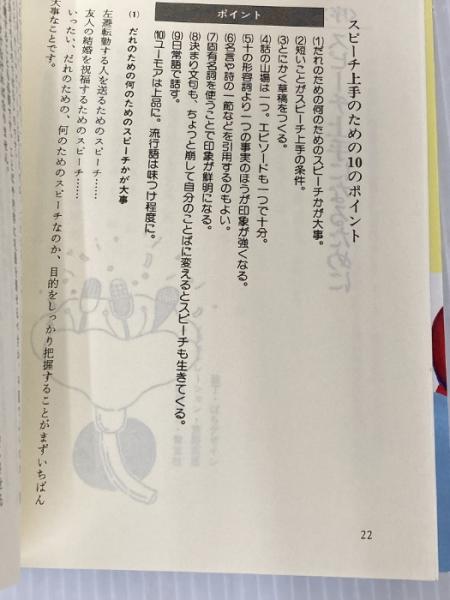 スピーチ上手のための10のポイント
ポイント
(1)だれのための何のためのスピーチかが大事。
(2)短いことがスピーチ上手の条件。
(3)とにかく草稿をつくる。
(4)話の山場は一つ。エピソードも一つで十分。
(5)十の形容詞より一つの事実のほうが印象が強くなる。
(6)名言や詩の一節などを引用するのもよい。
(7)固有名詞を使うことで印象が鮮明になる。
(8)決まり文句も、ちょっと崩して自分のことばに変えるとスピーチも生きてくる。
(9)日常語で話す。
(10)ユーモアは上品に。流行語は味つけ程度に。
(1) だれのための何のためのスピーチかが大事
左遷転勤する人を送るためのスピーチ……
友人の結婚を祝福するためのスピーチ……
いったい、だれのための、何のためのスピーチなのか、目的をしっかり把握することがまずいちばん
大事なことです。
22